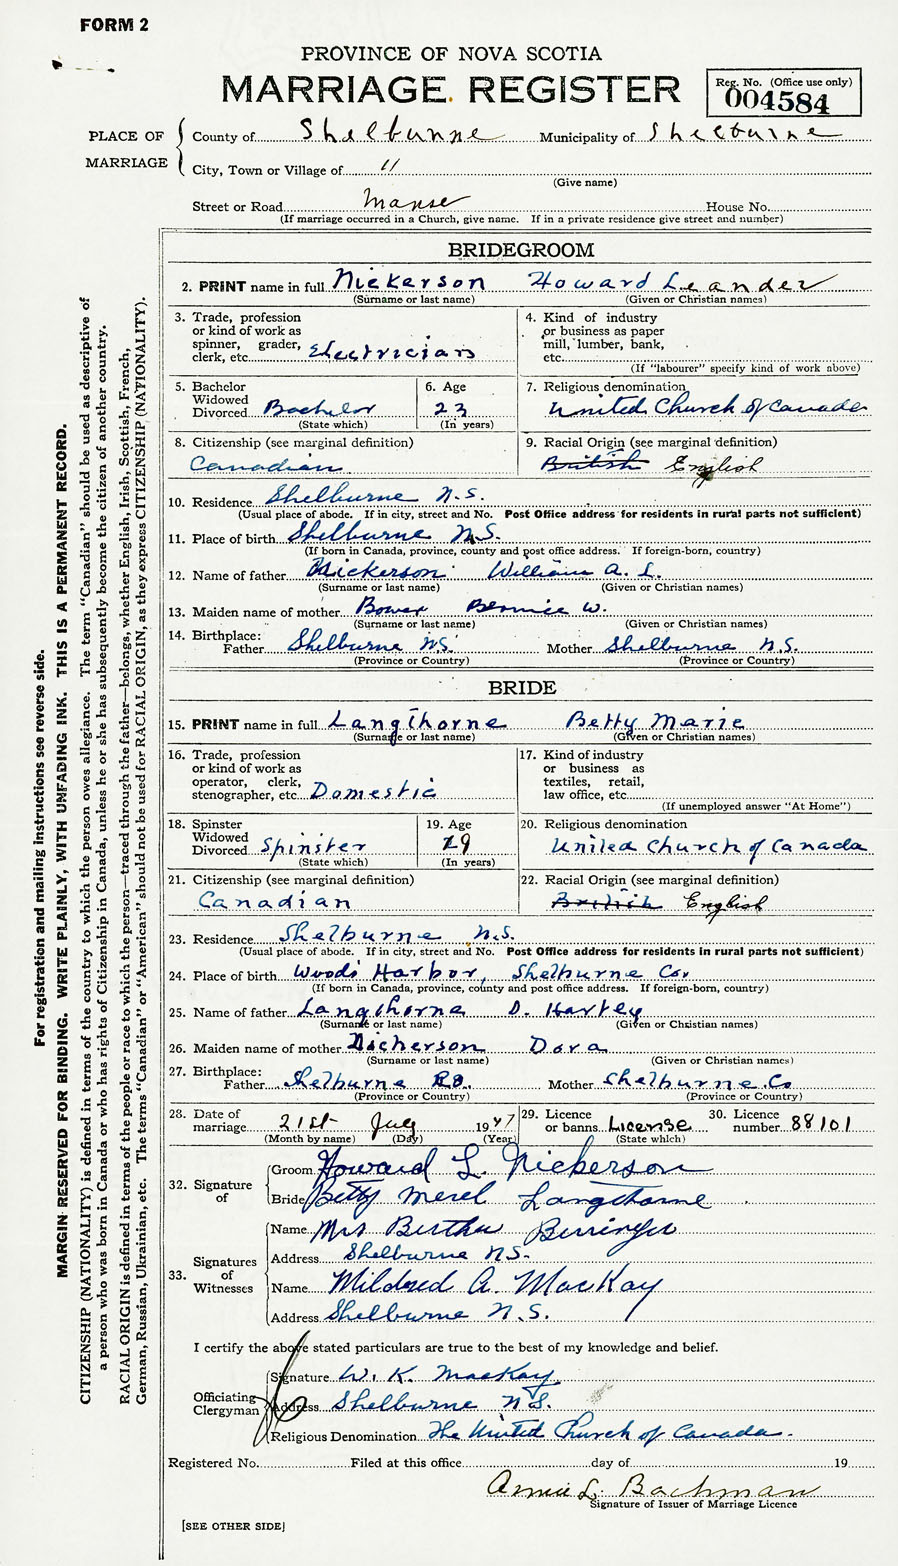 FORM 2
PROVINCE OF NOVA SCOTIA
MARRIAGE REGISTER
Reg. No. (Office use only)
004584
PLACE OF MARRIAGE
County of Shelburne Municipality of Shelburne
City, Town or Village of "
(Give name)
Street or Road Manse House No.
(If marriage occurred in a Church, give name. If in a private residence give street and number)
BRIDEGROOM
2. PRINT name in full Nickerson Howard Leander
(Surname or last name) (Given or Christian names)
3. Trade, profession or kind of work as spinner, grader, clerk, etc. Electrician
4. Kind of industry or business as paper mill, lumber, bank, etc.
(If "labourer" specify kind of work above)
5. Bachelor Widowed Divorced Bachelor
(State which)
6. Age 23
(In years)
7. Religious denomination United Church of Canada
8. Citizenship (see marginal definition) Canadian
9. Racial Origin (see marginal definition) British English
10. Residence Shelburne N.S.
(Usual place of abode. If in city, street and No. Post Office address for residents in rural parts not sufficient)
11. Place of birth Shelburne N.S.
(If born in Canada, province, county and post office address. If foreign-born, country)
12. Name of father Nickerson William A. L.
(Surname or last name) (Given or Christian names)
13. Maiden name of mother Bower Bernice W.
(Surname or last name) (Given or Christian names)
14. Birthplace: Father Shelburne N.S. Mother Shelburne N.S.
(Province or Country) (Province or Country)
BRIDE
15. PRINT name in full Langthorne Betty Marie
(Surname or last name) (Given or Christian names)
16. Trade, profession or kind of work as operator, clerk, stenographer, etc. Domestic
17. Kind of industry or business as textiles, retail, law office, etc.
(If unemployed answer "At Home")
18. Spinster Widowed Divorced Spinster
(State which)
19. Age 19
(In years)
20. Religious denomination United Church of Canada
21. Citizenship (see marginal definition) Canadian
22. Racial Origin (see marginal definition) British English
23. Residence Shelburne N.S.
(Usual place of abode. If in city, street and No. Post Office address for residents in rural parts not sufficient)
24. Place of birth Woods Harbor, Shelburne Co.
(If born in Canada, province, county and post office address. If foreign-born, country)
25. Name of father Langthorne D. Harley
(Surname or last name) (Given or Christian names)
26. Maiden name of mother Nickerson Dora
(Surname or last name) (Given or Christian names)
27. Birthplace: Father Shelburne Mother Shelburne Co
(Province or Country) (Province or Country)
28. Date of marriage 21st July 1947
(Month by name) (Day) (Year)
29. Licence or banns License
(State which)
30. Licence number 88101
32. Signature of
Groom Howard L. Nickerson
Bride Betty Langthorne
33. Signatures of Witnesses
Name Mrs Bertha Berringer
Address Shelburne N.S.
Name Mildred A. MacKay
Address Shelburne N.S.
I certify the above stated particulars are true to the best of my knowledge and belief.
Officiating Clergyman
Signature W. K. MacKay
Address Shelburne N.S.
Religious Denomination The United Church of Canada.
Registered No. Filed at this office day of 19
Annie L. Bachman
Signature of Issuer of Marriage Licence
[SEE OTHER SIDE]
For registration and mailing instructions see reverse side.
MARGIN RESERVED FOR BINDING. WRITE PLAINLY, WITH UNFADING INK. THIS IS A PERMANENT RECORD.
CITIZENSHIP (NATIONALITY) is defined in terms of the country to which the person owes allegiance. The term "Canadian" should be used as descriptive of
a person who was born in Canada or who has rights of Citizenship in Canada, unless he or she has subsequently become the citizen of another country.
RACIAL ORIGIN is defined in terms of the people or race to which the person—traced through the father—belongs, whether English, Irish, Scottish, French,
German, Russian, Ukrainian, etc. The terms "Canadian" or "American" should not be used for RACIAL ORIGIN, as they express CITIZENSHIP (NATIONALITY).